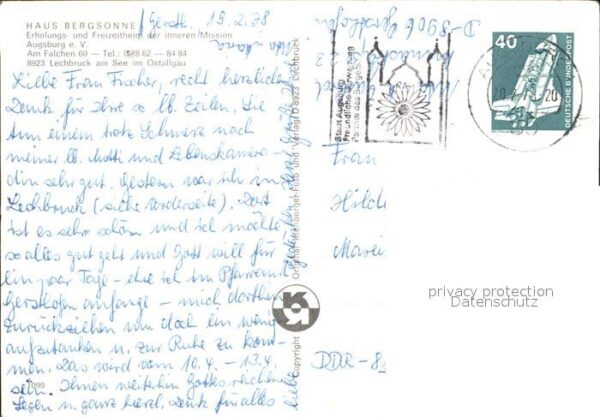 HAUS BERGSONNE
Erholungs- und Freizeitheim der inneren Mission
Augsburg e. V.
Am Falchen 60 – Tel.: 0 88 62 – 84 84
8923 Lechbruck am See im Ostallgäu
Gersth. 19.2.78
Liebe Frau Fischer, recht herzlichen
Dank für Ihre so lb. Zeilen. Sie
tun einem trotz Schmerz nach
meiner lb. Mutti und Lebenskamera-
din sehr gut. Gestern war ich in
Lechbruck (siehe Vorderseite). Dort
ist es sehr schön und ich möchte,
so alles gut geht und Gott will für
ein paar Tage – ehe ich im Pfarramt
Gersthofen anfange – mich dorthin
zurückziehen um doch ein wenig
aufzutanken u. zur Ruhe zu kom-
men. Das wird vom 10.4. – 13.4.
sein. Ihnen weiterhin Gottes reichen
Segen u. ganz herzl. Dank für alles
liebe
7099
Copyright
Original Hernberger-Foto und Verlag D 8923 Lechbruck
D-8906 Gersthofen
Stadt Augsburg
40
DEUTSCHE BUNDESPOST
20
Frau
Hild
Marei
DDR-8
privacy protection
Datenschutz